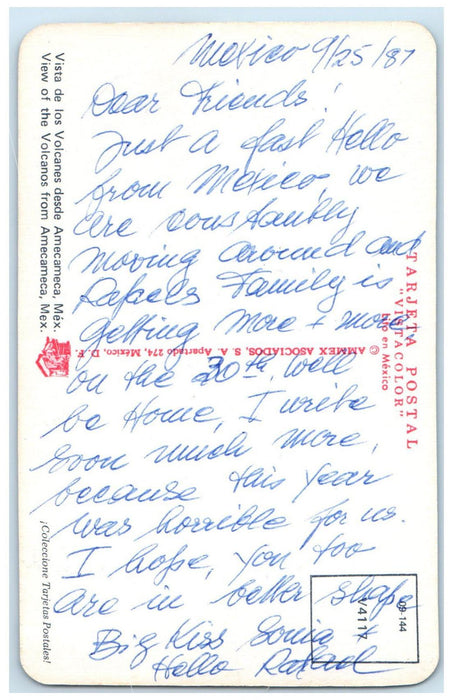 Mexico 9/25/87
Dear Friends!
Just a fast Hello
from Mexico, we
are constantly
moving around and
Rafaels Family is
getting more + more
on the 30th, well
be Home, I write
soon much more,
because this year
was horrible for us.
I hope, you too
are in better shape
Big Kiss Sonia
Hello Rafael
Vista de los Volcanes desde Amecameca, Méx.
View of the Volcanos from Amecameca, Mex.
¡Coleccione Tarjetas Postales!
© AMMEX ASOCIADOS, S. A. Apartado 274, México, D. F.
TARJETA POSTAL
"VISTACOLOR"
en México
09-144
V4117